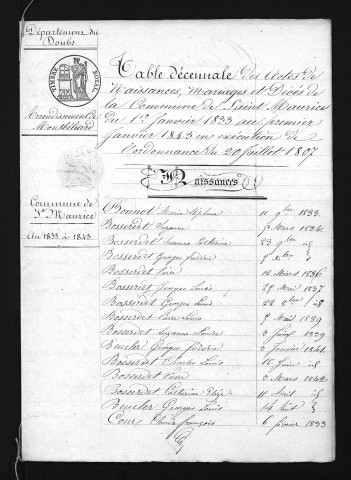 Département du
Doubs
TIMBRE ROYAL
Arrondissement de
Montbéliard
Commune de
St Maurice
An 1833 à 1843
Table décennale des Actes de
Naissances, Mariages et Décès de
la Commune de Saint Maurice
du 1er Janvier 1833 au premier
Janvier 1843 en exécution de
l'ordonnance du 20 Juillet 1807
Naissances
Bonnot Marie 11 9bre 1833
Bosserdet Suzanne 5 Mars 1834
Bosserdet Suzanne Catherine 23 9bre
Bosserdet Georges frédéric
Bosserdet Pierre Mars 1836
Bosserdet Georges Louis 29 Mai 1837
Bosserdet Georges 22 8bre
Bosserdet Pierre 9 Mai 1839
Bosserdet Suzanne 1839
Beucler Georges frédéric 2 Janvier 1841
Bosserdet Charles Louis 16 Juin
Bosserdet Pierre 3 Mars 1842
Bosserdet Catherine 11 Avril
Beucler Georges Louis 14
Cour Claude françois 6 février 1833